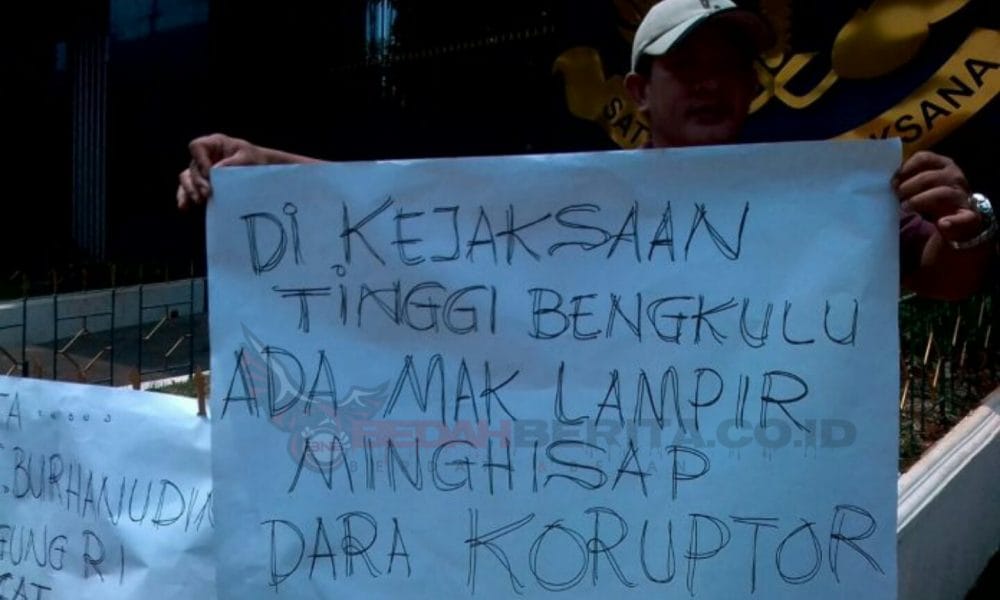 SAT
KSANA
DI KEJAKSAAN
TINGGI BENGKULU
ADA MAK LAMPIR
MINGHISAP
DARA KORUPTOR
BEDAHBERITA.CO.ID
TA.....
BURHANUDIN
GUNG RI
CAT